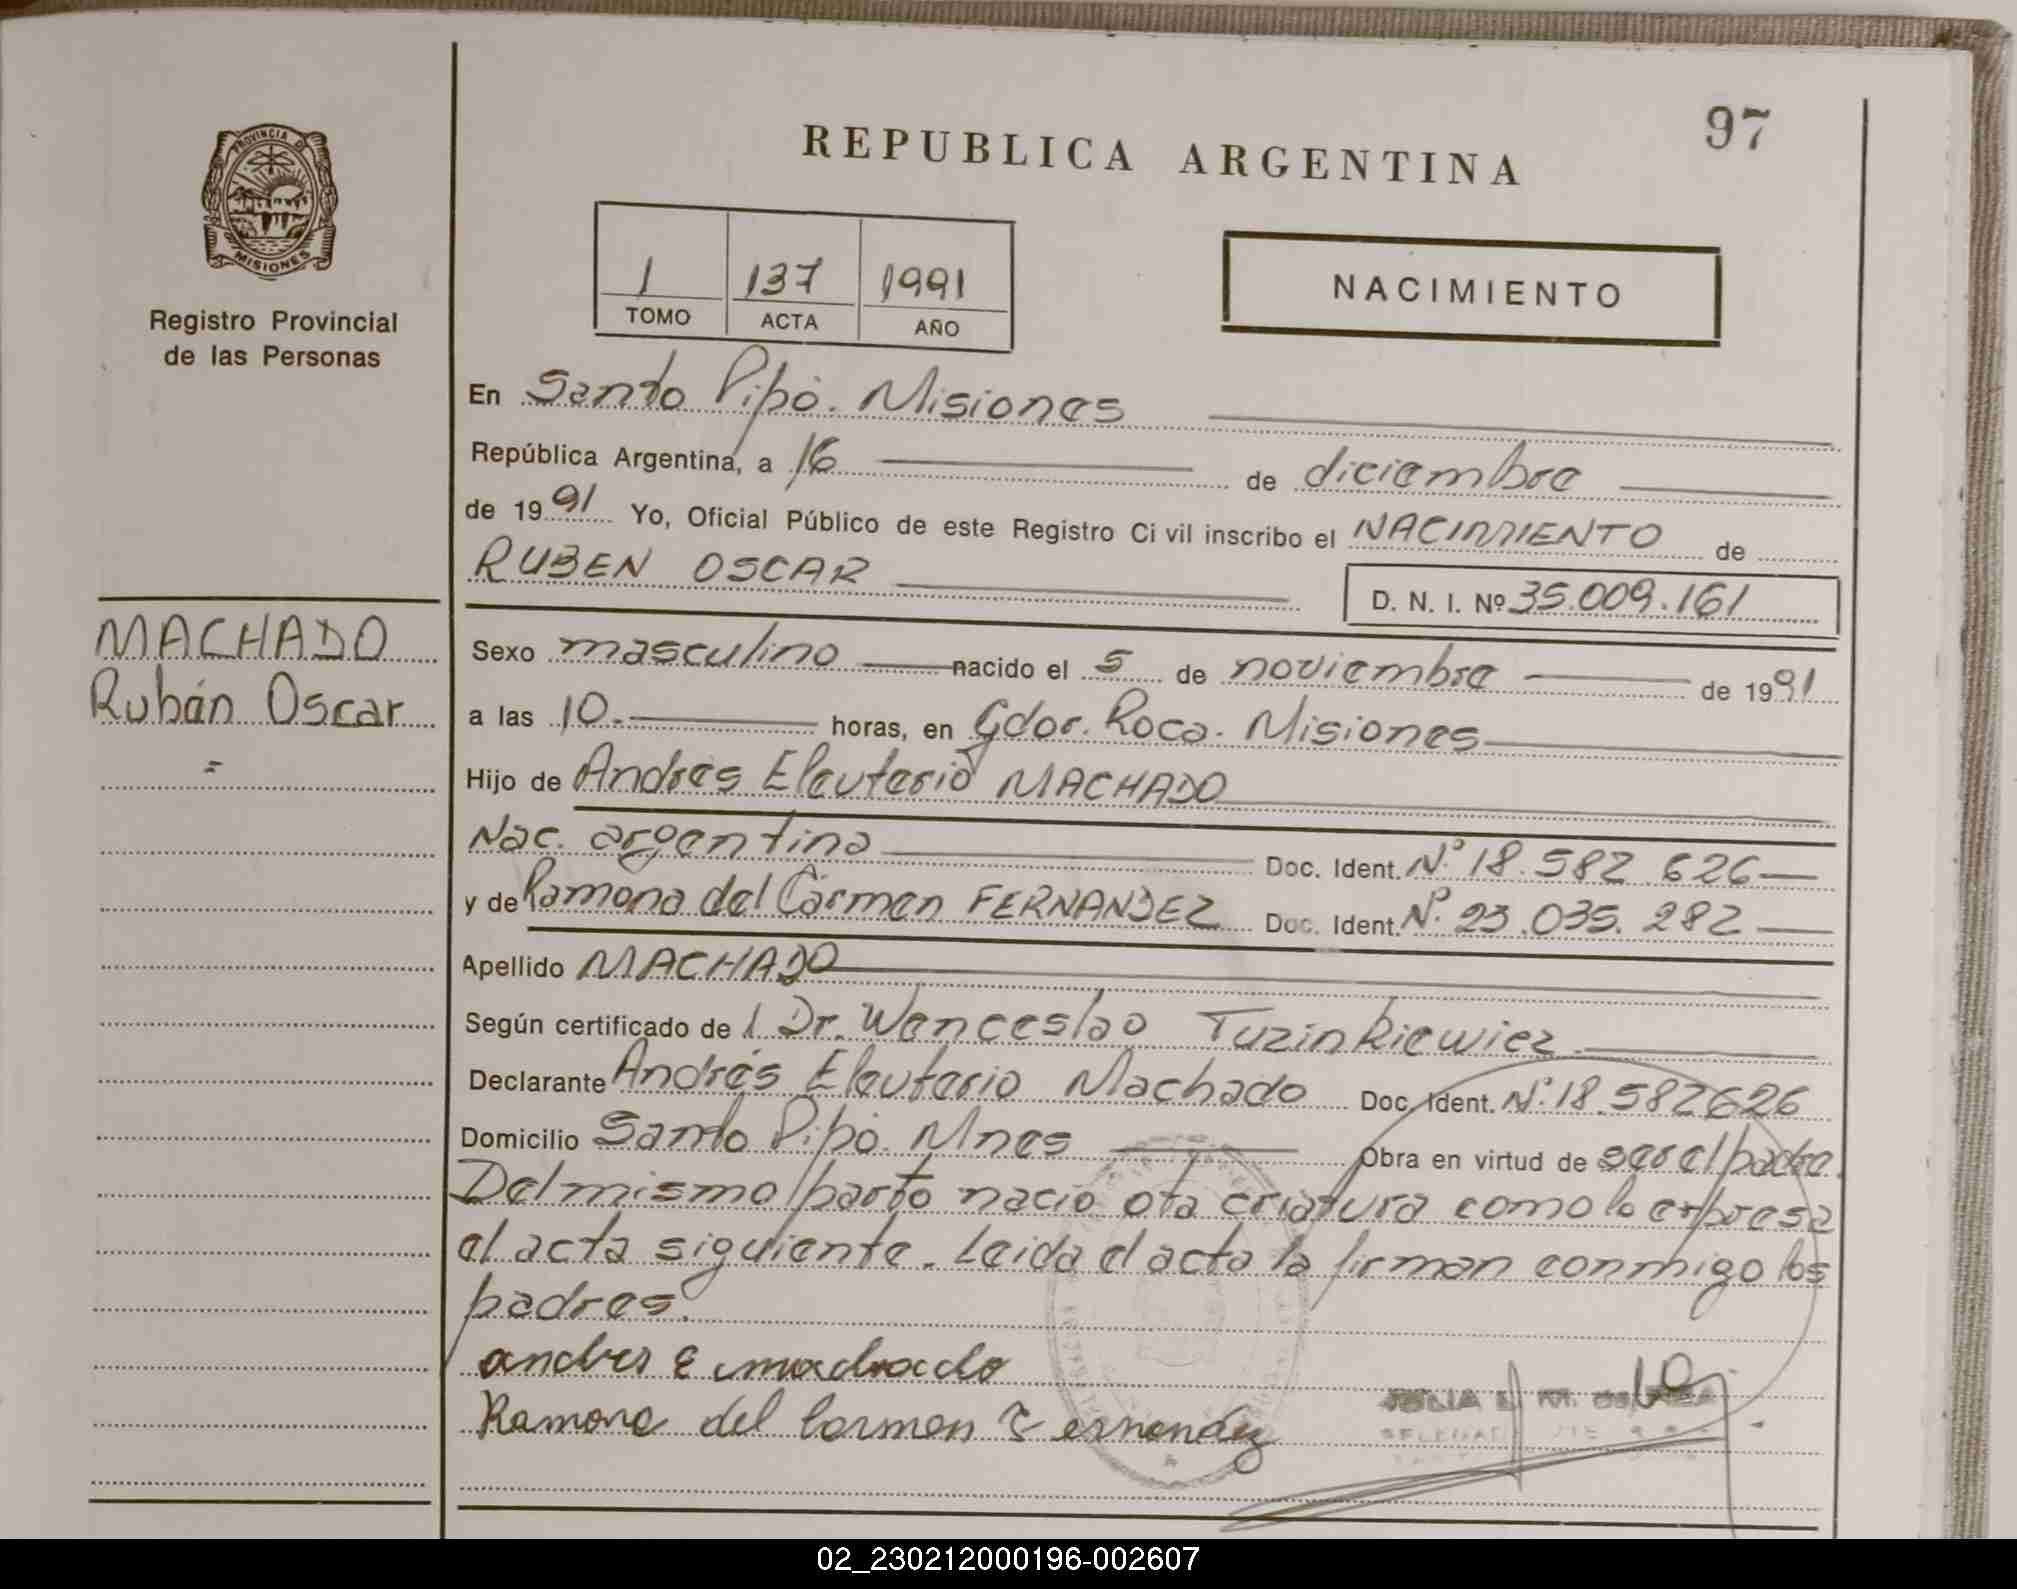 97
REPUBLICA ARGENTINA
PROVINCIA DE
MISIONES
Registro Provincial
de las Personas
1 137 1991
TOMO ACTA AÑO
NACIMIENTO
En Santo Pipó. Misiones
República Argentina, a 16 de diciembre
de 1991 Yo, Oficial Público de este Registro Ci vil inscribo el NACIMIENTO de
RUBEN OSCAR
D. N. I. Nº 35.009.161
MACHADO
Rubén Oscar
Sexo masculino nacido el 5 de noviembre de 1991
a las 10. horas, en Gdor. Roca. Misiones
Hijo de Andrés Eleuterio MACHADO
Nac. argentina Doc. Ident. Nº 18.582.626
y de Ramona del Cármen FERNANDEZ Doc. Ident. Nº 23.035.282
Apellido MACHADO
Según certificado de l Dr. Wenceslao Tuzinkiewiez
Declarante Andrés Eleuterio Machado Doc. Ident. Nº 18.582626
Domicilio Santo Pipó. Mnes Obra en virtud de ser el padre.
Del mismo parto nació ota criatura como lo expresa
el acta siguiente. Leida el acta la firman conmigo los
padres.
andres E machado
Ramona del Carmen Fernandez
JULIA
02_230212000196-002607